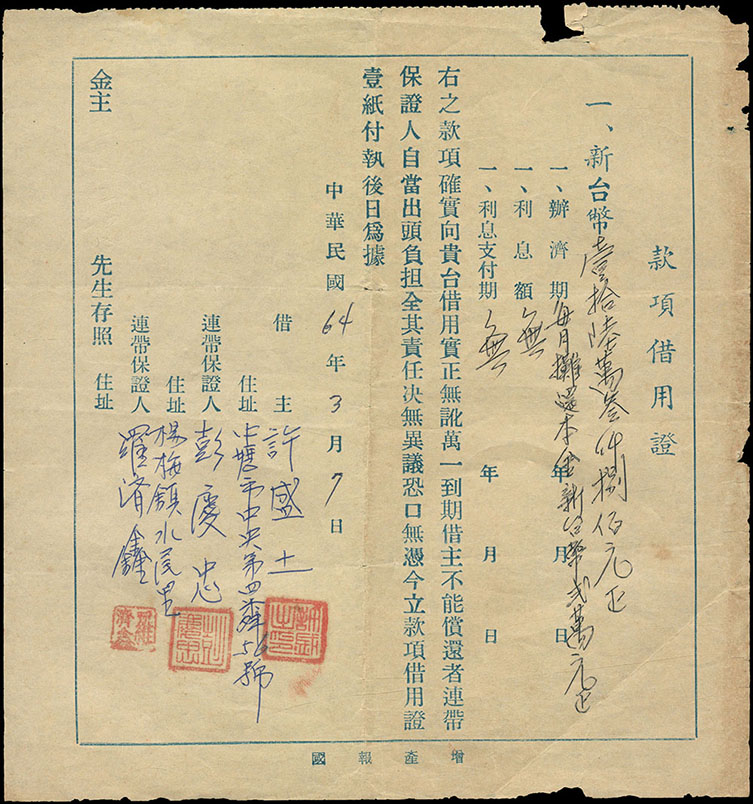 款項借用證
一、新台幣壹拾陸萬叁仟捌佰元正
一、辦濟期每月攤還本金新台幣弍萬元正 年 月 日
一、利息額 無
一、利息支付期 無 年 月 日
右之款項確實向貴台借用實正無訛萬一到期借主不能償還者連帶
保證人自當出頭負担全其責任決無異議恐口無憑今立款項借用證
壹紙付執後日爲據
中華民國 64 年 3 月 7 日
借主 許盛土
住址 中壢市中央第四鄰56號
連帶保證人 彭慶忠
住址 楊梅鎮水尾里
連帶保證人 羅濟鑫
金主 先生存照 住址
增產報國
羅濟鑫